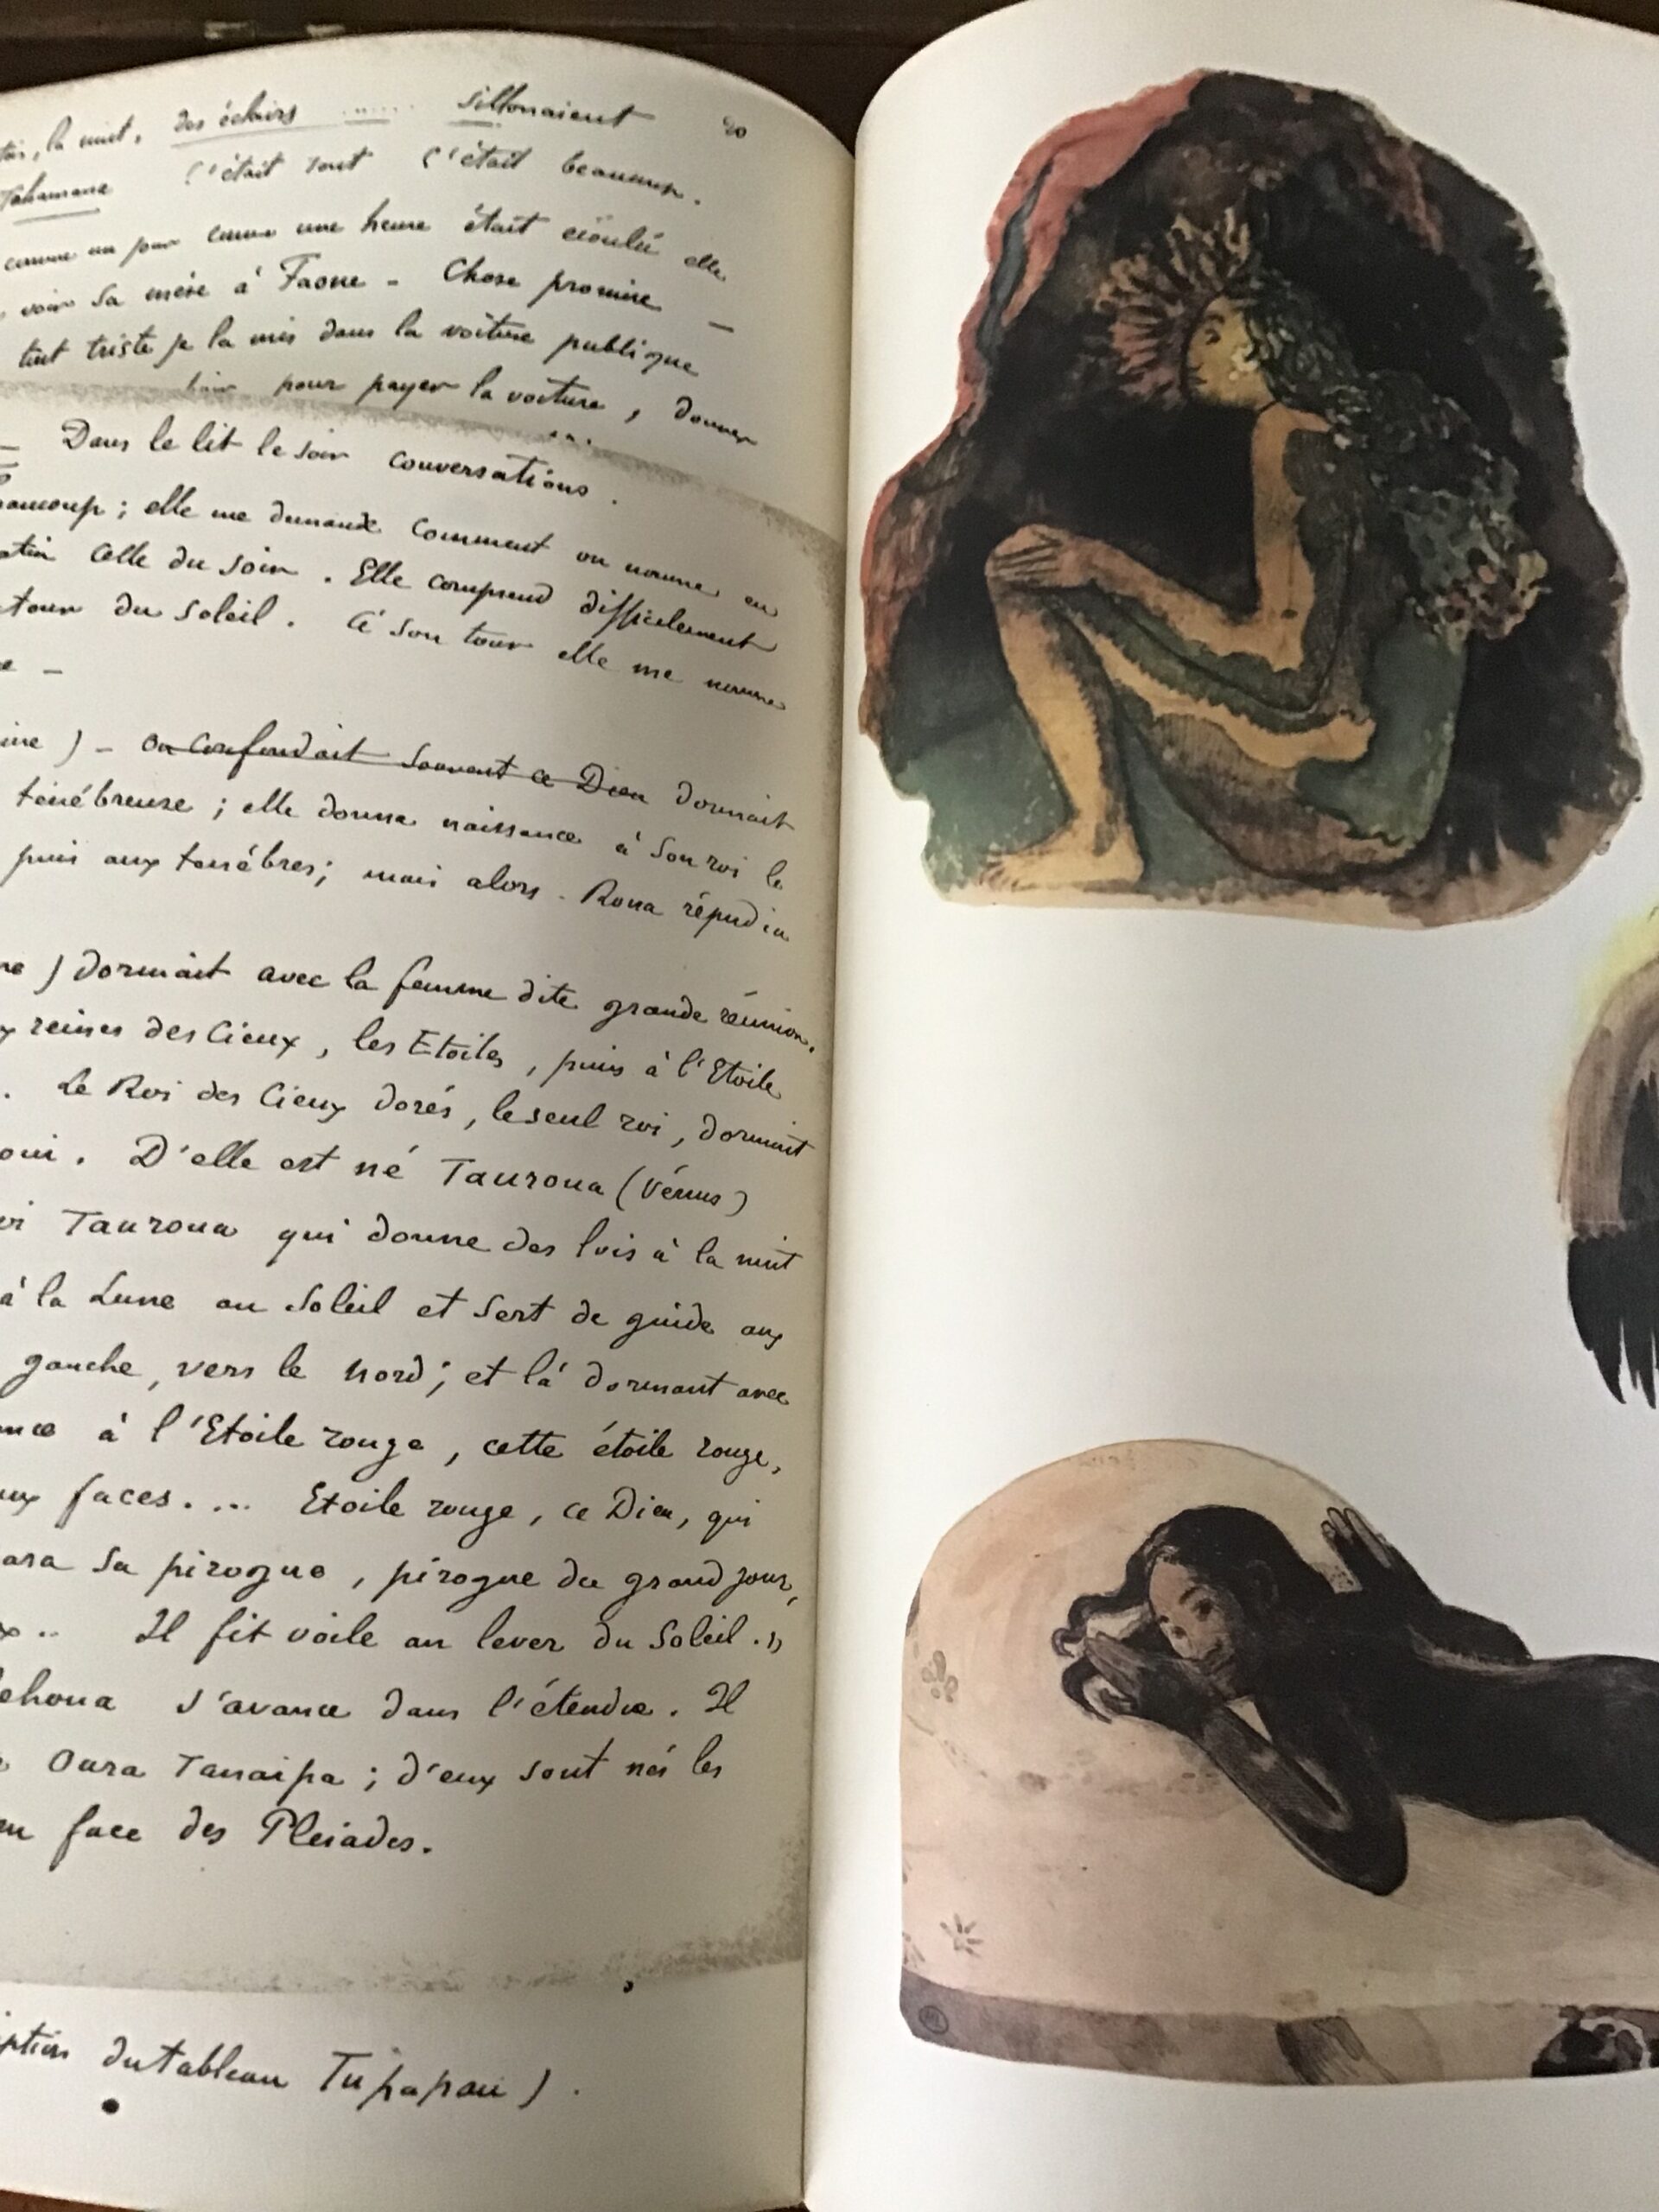 la nuit, des éclairs ...... Sillonaient 20
Tehamana C'était tout C'était beaucoup.
comme un jour comme une heure était écoulé elle
voir sa mère à Faone - Chose promise -
tout triste je la mis dans la voiture publique
pour payer la voiture, donner
...
- Dans le lit le soir conversations.
beaucoup; elle me demande comment on nomme en
celle du soir. Elle comprend difficilement
tour du soleil. à son tour elle me nomme
-
) - on confondait souvent ce Dieu dormait
ténébreuse; elle donne naissance à son roi le
puis aux tenébres; mais alors - Roua répudia
) dormait avec la femme dite grande réunion.
reines des Cieux, les Etoiles, puis à l'Etoile
. Le Roi des Cieux dorés, le seul roi, dormait
. D'elle est né Tauroua (Vénus)
Tauroua qui donne des lois à la nuit
à la Lune au Soleil et sert de guide aux
gauche, vers le Nord; et là dormant avec
à l'Etoile rouge, cette étoile rouge,
faces.... Etoile rouge, ce Dieu, qui
sa pirogue, pirogue du grand jour,
.. Il fit voile au lever du Soleil."
s'avance dans l'étendue. Il
Oura Taneipa; d'eux sont nés les
face des Pleiades.
du tableau Tupapau).